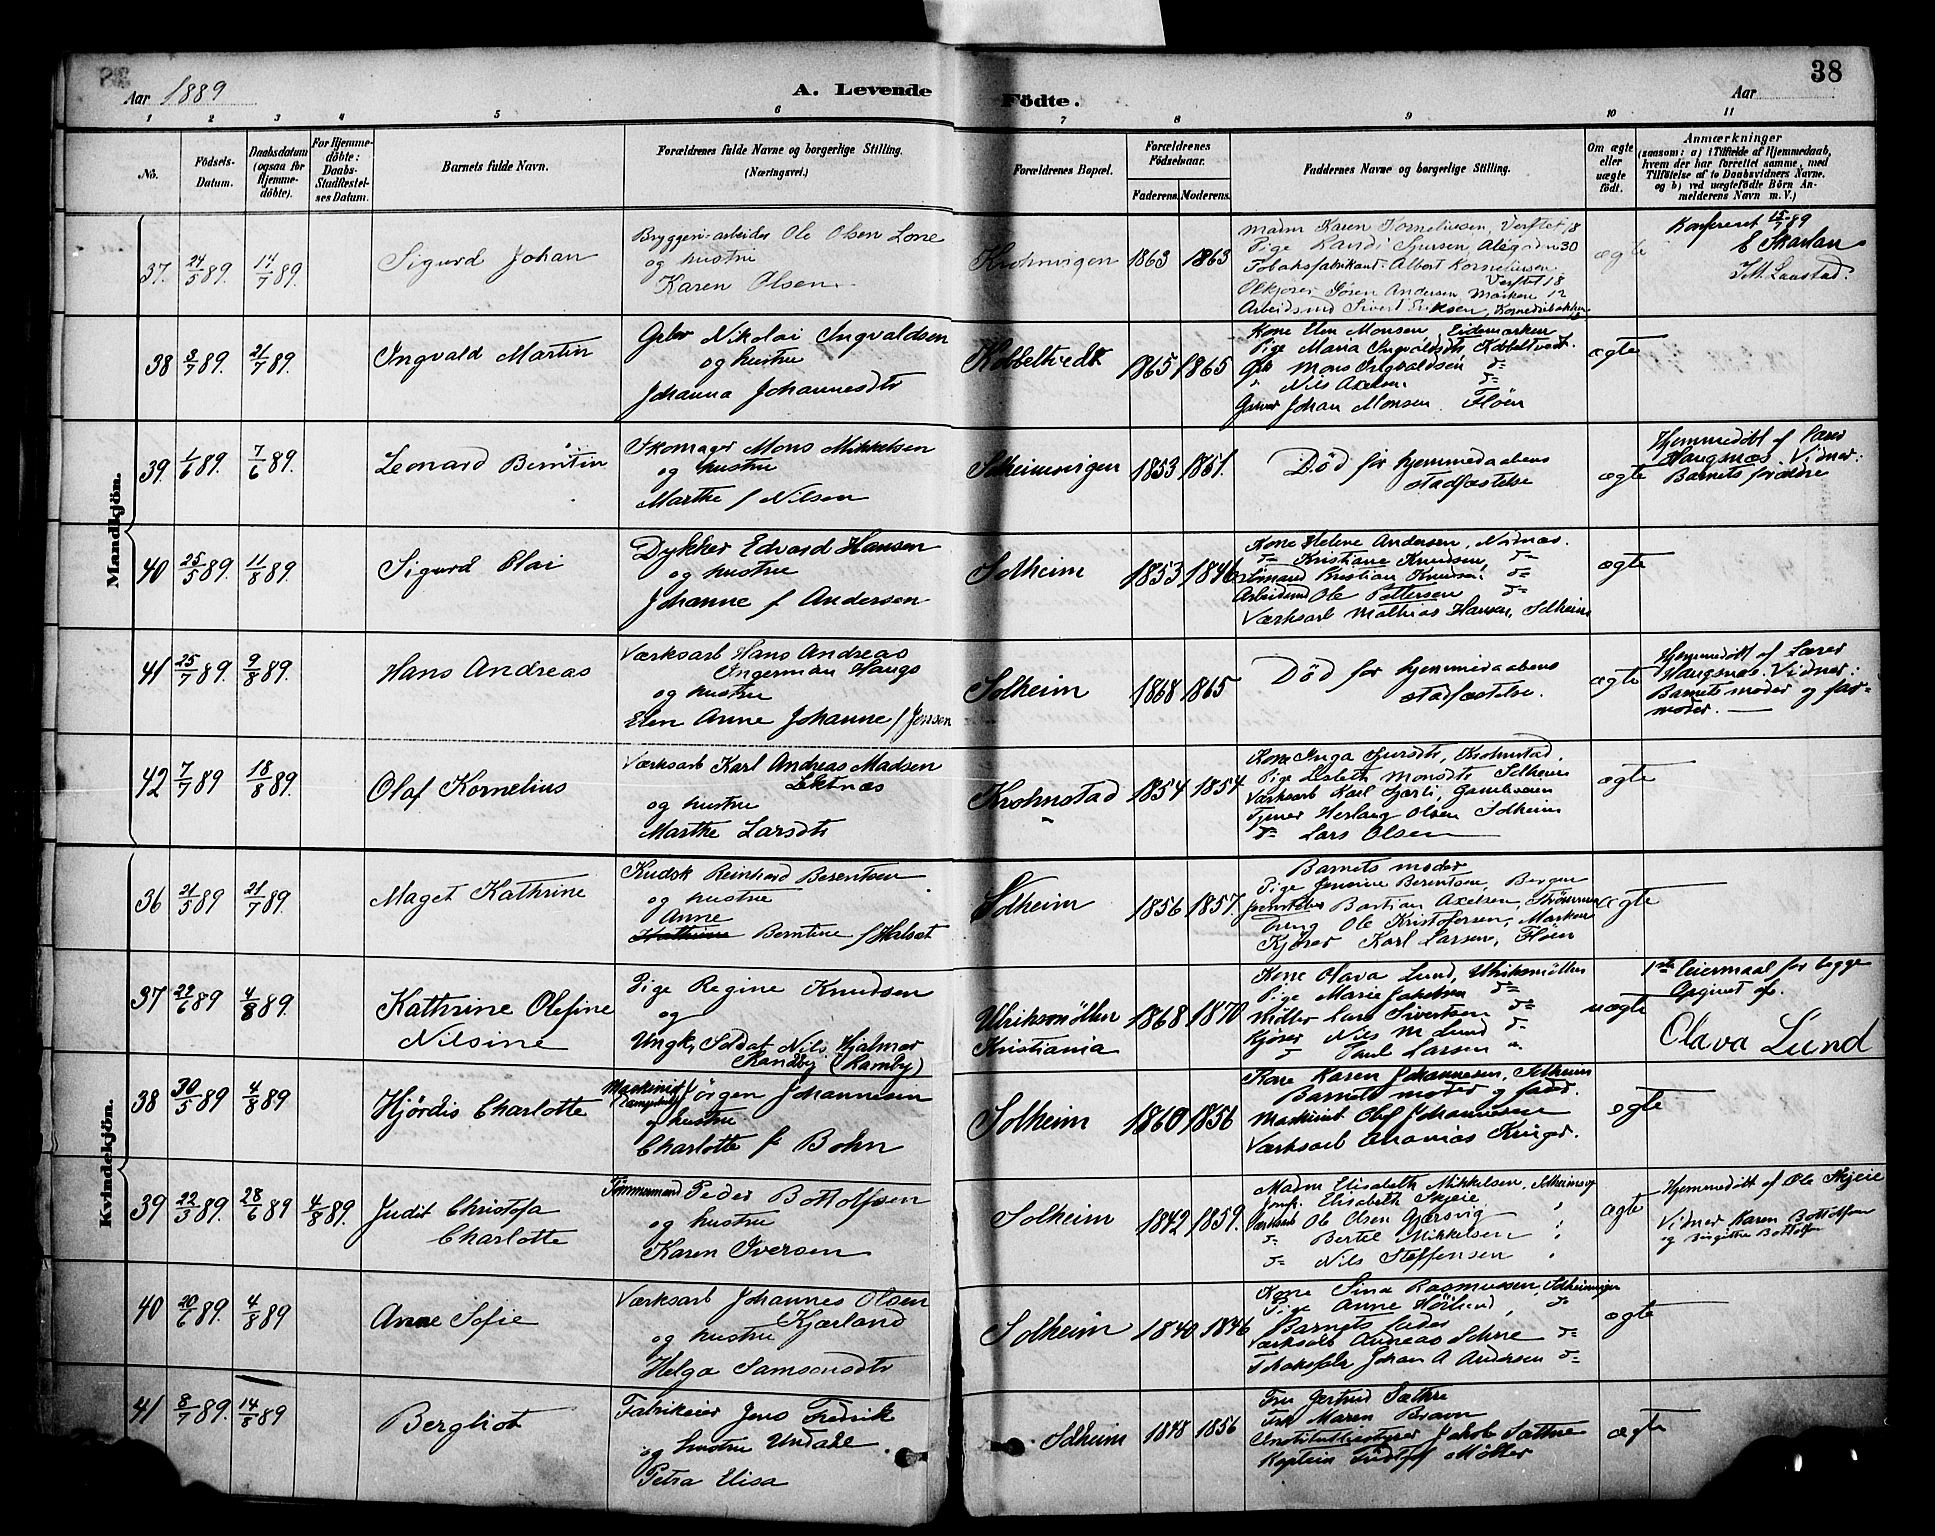 38
Aar 1889
A. Levende Födte.
Aar
1 2 3 4 5 6 7 8 9 10 11
No.
Födsels-Datum.
Daabsdatum (ogsaa for Hjemmedöbte).
For Hjemmedöbte: Daabs-Stadfæstelses Datum.
Barnets fulde Navn.
Forældrenes fulde Navne og borgerlige Stilling. (Næringsvei.)
Forældrenes Bopæl.
Forældrenes Födselsaar.
Faderens. Moderens.
Faddernes Navne og borgerlige Stilling.
Om ægte eller uægte födt.
Anmærkninger
(saasom: a) i Tilfælde af Hjemmedaab, hvem der har forrettet samme, med Tilföielse af to Daabsvidners Navne, og b) ved uægtefödte Börn Anmelderens Navn m. V.)
Mandkjön.
37. 24/5 89. 14/7 89. Sigurd Johan
Bryggeri-arbeider Ole Olsen Lone
og hustru
Karen Olsen
Krohnvigen 1863 1863
Madm Karen Korneliussen, Verftet 18
Pige Randi Sjursen, Alegaden 30
Tobaksfabrikant. Albert Korneliussen
Verftet 18
Ølkjører Søren Andersen Marken 12
Arbeidsmd Sivert Eriksen,
ægte
Konfereret 15/7 89
E Skarlan
38 3/7 89. 21/7 89. Ingvald Martin
Gbr Nikolai Ingvaldsen
og hustru
Johanna Johannesdtr
Kobbeltvedt 1865 1865
Kone Elen Monsen, Eidemarken
Pige Maria Ingvaldsdtr, Kobbeltvedt.
Gbr Mons Ingvaldsen do
" Nils Axelsen do
Johan Monsen. Fløen
ægte
39. 1/6 89. 7/6 89. Leonard Berntin
Skomager Mons Mikkelsen
og hustru
Marthe f Nilsen
Solheimsvigen 1853 1851.
Død før hjemmedaabens
stadfæstelse
ægte
Hjemmedøbt af Lærer
Haugsnæs. Vidner:
Barnets forældre
40 25/5 89. 11/8 89. Sigurd Olai
Dykker Edvard Hansen
og hustru
Johanne f Andersen
Solheim 1853 1846
Kone Helene Andersen, Nidnæs.
do Kristiane Knudsen, do
Kristian Knudsen do
Arbeidsmd Ole Pettersen do
Værksarb Mathias Hansen, Solheim
ægte
41 25/7 89. 9/8 89. Hans Andreas
Værksarb Hans Andreas
Ingerman Haugs
og hustru
Elen Anne Johanne f Jensen
Solheim 1868 1865
Død før hjemmedaabens
stadfæstelse.
ægte
Hjemmedøbt af Lærer
Haugsnæs. Vidner:
Barnets moder og far-
moder.
42 7/7 89 18/8 89. Olaf Kornelius
Værksarb Karl Andreas Madsen
Lektnæs
og hustru
Marthe Larsdtr
Krohnstad 1854 1854
Kone Inga Sjursdtr, Krohnstad.
Pige Lisbeth Monsdtr Solheim
Værksarb Karl Gamleveien
Tjener Herlaug Olsen Solheim
do Lars Olsen
ægte
Kvindekjön.
36 21/5 89 21/7 89. Maget Kathrine
Kudsk Reinhard Berentsen
og hustru
Anne
Kathrine Berntine f Halset
Solheim 1856 1857.
Barnets moder
Pige Jensine Berentsen, Bergen
Bastian Axelsen, Strømmen
Dreng Ole Kristofersen, Marken
Kjører Karl Larsen, Fløen
ægte
37 22/6 89 4/8 89. Kathrine Olefine
Nilsine
Pige Regine Knudsen
og
Ungk, Soldat Nils Hjalmar
Randby (Ramby)
Ulriksmøllen
Kristiania
1868 1870
Kone Olava Lund, Ulriksmøllen
Pige Marie Jakobsen do
Møller Lars Sivertsen do
Kjører Nils M Lund do
do Paul Larsen "
uægte
1ste leiermaal for begge
Opgivet af.
Olava Lund
38 30/5 89 4/8 89 Hjørdis Charlotte
Maskinist Jörgen Johannesen
og hustru
Charlotte f. Bohn
Solheim 1860 1856
Kone Karen Johannesen, Solheim
Barnets moder og fader.
Maskinist Olaf Johannesen
Værksarb Ananias Krüger.
ægte
39 22/3 89. 28/6 89 4/8 89. Judit Christofa
Charlotte
Tømmermand Peder Bottolfsen
og hustru
Karen Iversen
Solheim 1842 1859.
Madm Elisabeth Mikkelsen, Solheimsvg
Jomf. Elisabeth Skjeie
Værksarb Ole Olsen Gjærsvig
do Bertel Mikkelsen
do Nils Steffensen
ægte
Hjemmedøbt af Ole Skjeie
Vidner Karen Bottolfsen
og Birgitte Bottolfsen
40 20/6 89. 4/8 89 Anne Sofie
Værksarb Johannes Olsen
Kjærland
og hustru
Helga Samsonsdtr
Solheim 1840 1846
Kone Sina Rasmussen, Solheimsvigen
Pige Anne Hörlund, do
Barnets fader
Værksarb Andreas do
Tobaksfabr Johan A Andersen do
ægte
41 8/7 89. 14/8 89 Bergliot
Fabrikeier Jens Fredrik
og hustru Undall
Petra Elisa
Solheim 1848 1856
Fru Gertrud Sæthre
Frk Maren Bravn
Institutbestyrer Jakob Sæthre
Kaptein Fridtjof Møller
ægte